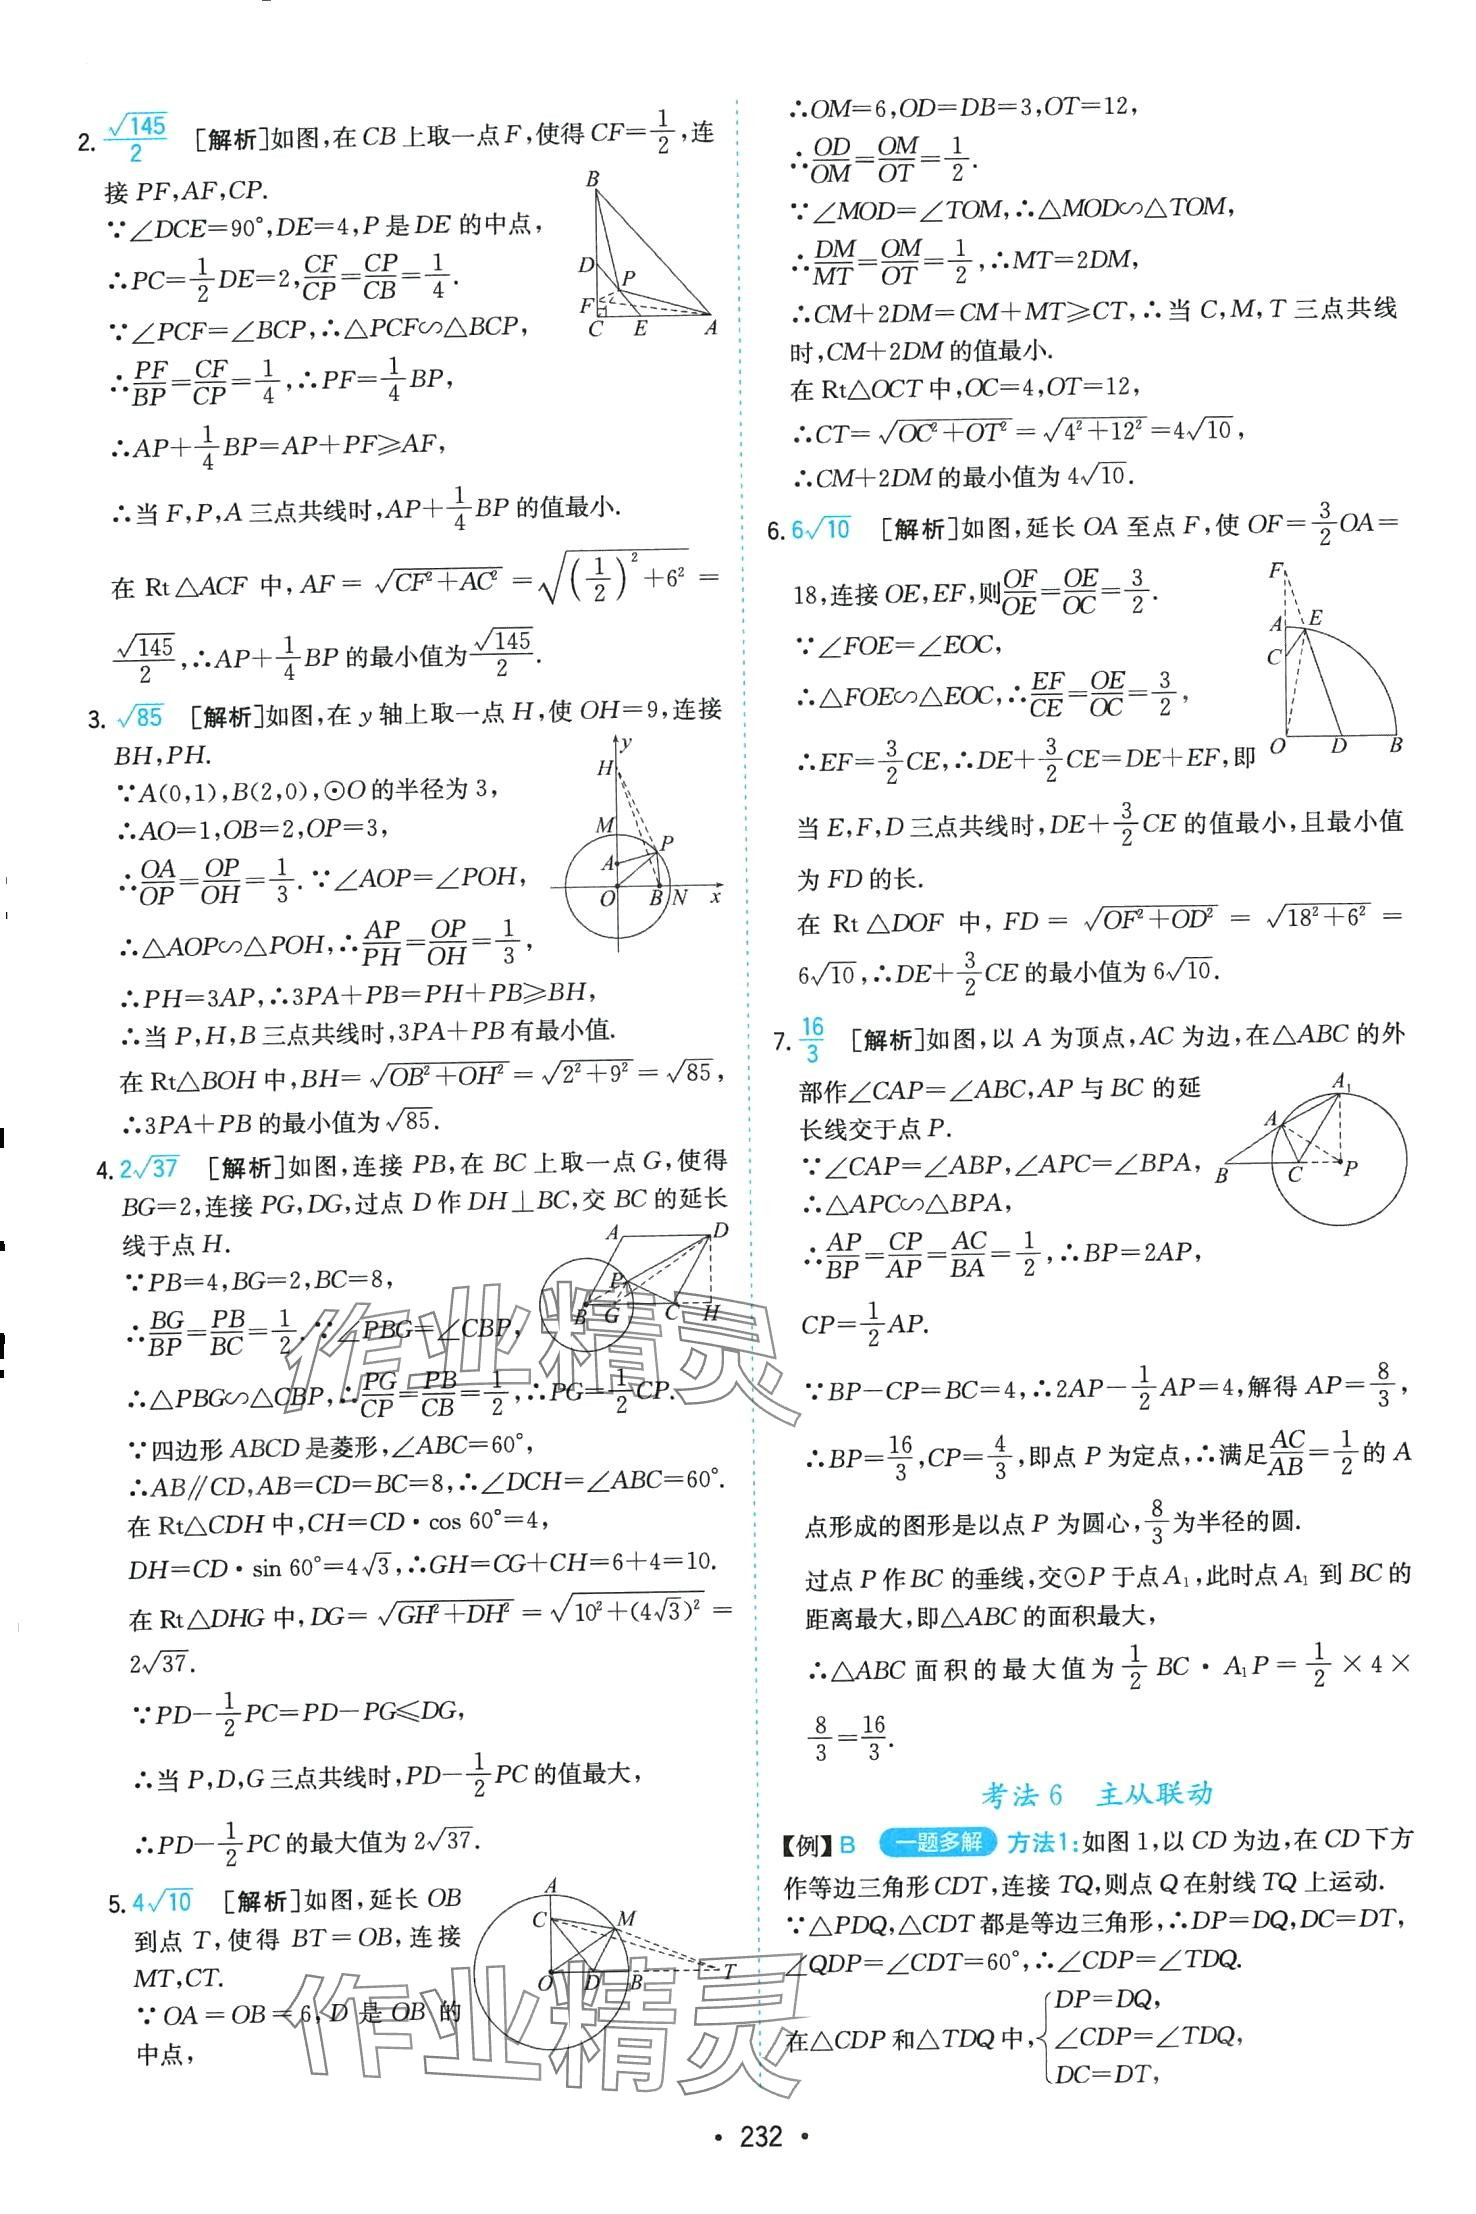 2. √145/2 [解析]如图,在 CB 上取一点 F,使得 CF=1/2,连
接 PF,AF,CP.
∵∠DCE=90°,DE=4,P 是 DE 的中点,
∴PC=1/2DE=2,CF/CP=CP/CB=1/4.
∵∠PCF=∠BCP,∴△PCF∽△BCP,
∴PF/BP=CF/CP=1/4,∴PF=1/4BP,
∴AP+1/4BP=AP+PF≥AF,
∴当 F,P,A 三点共线时,AP+1/4BP 的值最小.
在 Rt△ACF 中,AF=√(CF²+AC²)=√((1/2)²+6²)=
√145/2,∴AP+1/4BP 的最小值为√145/2.
B
D
P
F
C
E
A
3. √85 [解析]如图,在 y 轴上取一点 H,使 OH=9,连接
BH,PH.
∵A(0,1),B(2,0),⊙O 的半径为 3,
∴AO=1,OB=2,OP=3,
∴OA/OP=OP/OH=1/3.∵∠AOP=∠POH,
∴△AOP∽△POH,∴AP/PH=OP/OH=1/3,
∴PH=3AP,∴3PA+PB=PH+PB≥BH,
∴当 P,H,B 三点共线时,3PA+PB 有最小值.
在 Rt△BOH 中,BH=√(OB²+OH²)=√(2²+9²)=√85,
∴3PA+PB 的最小值为√85.
y
H
M
P
A
O
B
N
x
4. 2√37 [解析]如图,连接 PB,在 BC 上取一点 G,使得
BG=2,连接 PG,DG,过点 D 作 DH⊥BC,交 BC 的延长
线于点 H.
∵PB=4,BG=2,BC=8,
∴BG/BP=PB/BC=1/2.∵∠PBG=∠CBP,
∴△PBG∽△CBP,∴PG/CP=PB/CB=1/2,∴PG=1/2CP.
∵四边形 ABCD 是菱形,∠ABC=60°,
∴AB∥CD,AB=CD=BC=8,∴∠DCH=∠ABC=60°.
在 Rt△CDH 中,CH=CD·cos 60°=4,
DH=CD·sin 60°=4√3,∴GH=CG+CH=6+4=10.
在 Rt△DHG 中,DG=√(GH²+DH²)=√(10²+(4√3)²)=
2√37.
∵PD-1/2PC=PD-PG≤DG,
∴当 P,D,G 三点共线时,PD-1/2PC 的值最大,
∴PD-1/2PC 的最大值为 2√37.
A
D
P
B
G
C
H
5. 4√10 [解析]如图,延长 OB
到点 T,使得 BT=OB,连接
MT,CT.
∵OA=OB=6,D 是 OB 的
中点,
A
C
M
O
D
B
T
∴OM=6,OD=DB=3,OT=12,
∴OD/OM=OM/OT=1/2.
∵∠MOD=∠TOM,∴△MOD∽△TOM,
∴DM/MT=OM/OT=1/2,∴MT=2DM,
∴CM+2DM=CM+MT≥CT,∴当 C,M,T 三点共线
时,CM+2DM 的值最小.
在 Rt△OCT 中,OC=4,OT=12,
∴CT=√(OC²+OT²)=√(4²+12²)=4√10,
∴CM+2DM 的最小值为 4√10.
6. 6√10 [解析]如图,延长 OA 至点 F,使 OF=3/2OA=
18,连接 OE,EF,则OF/OE=OE/OC=3/2.
∵∠FOE=∠EOC,
∴△FOE∽△EOC,∴EF/CE=OE/OC=3/2,
∴EF=3/2CE,∴DE+3/2CE=DE+EF,即
当 E,F,D 三点共线时,DE+3/2CE 的值最小,且最小值
为 FD 的长.
在 Rt△DOF 中,FD=√(OF²+OD²)=√(18²+6²)=
6√10,∴DE+3/2CE 的最小值为 6√10.
F
A
E
C
O
D
B
7. 16/3 [解析]如图,以 A 为顶点,AC 为边,在△ABC 的外
部作∠CAP=∠ABC,AP 与 BC 的延
长线交于点 P.
∵∠CAP=∠ABP,∠APC=∠BPA,
∴△APC∽△BPA,
∴AP/BP=CP/AP=AC/BA=1/2,∴BP=2AP,
CP=1/2AP.
∵BP-CP=BC=4,∴2AP-1/2AP=4,解得 AP=8/3,
∴BP=16/3,CP=4/3,即点 P 为定点,∴满足AC/AB=1/2的 A
点形成的图形是以点 P 为圆心,8/3为半径的圆.
过点 P 作 BC 的垂线,交⊙P 于点 A₁,此时点 A₁ 到 BC 的
距离最大,即△ABC 的面积最大,
∴△ABC 面积的最大值为1/2BC·A₁P=1/2×4×
8/3=16/3.
A₁
A
B
C
P
考法 6 主从联动
【例】B 一题多解 方法1:如图 1,以 CD 为边,在 CD 下方
作等边三角形 CDT,连接 TQ,则点 Q 在射线 TQ 上运动.
∵△PDQ,△CDT 都是等边三角形,∴DP=DQ,DC=DT,
∠QDP=∠CDT=60°,∴∠CDP=∠TDQ.
在△CDP 和△TDQ 中,{DP=DQ,
∠CDP=∠TDQ,
DC=DT,
作业精灵
作业精灵
· 232 ·